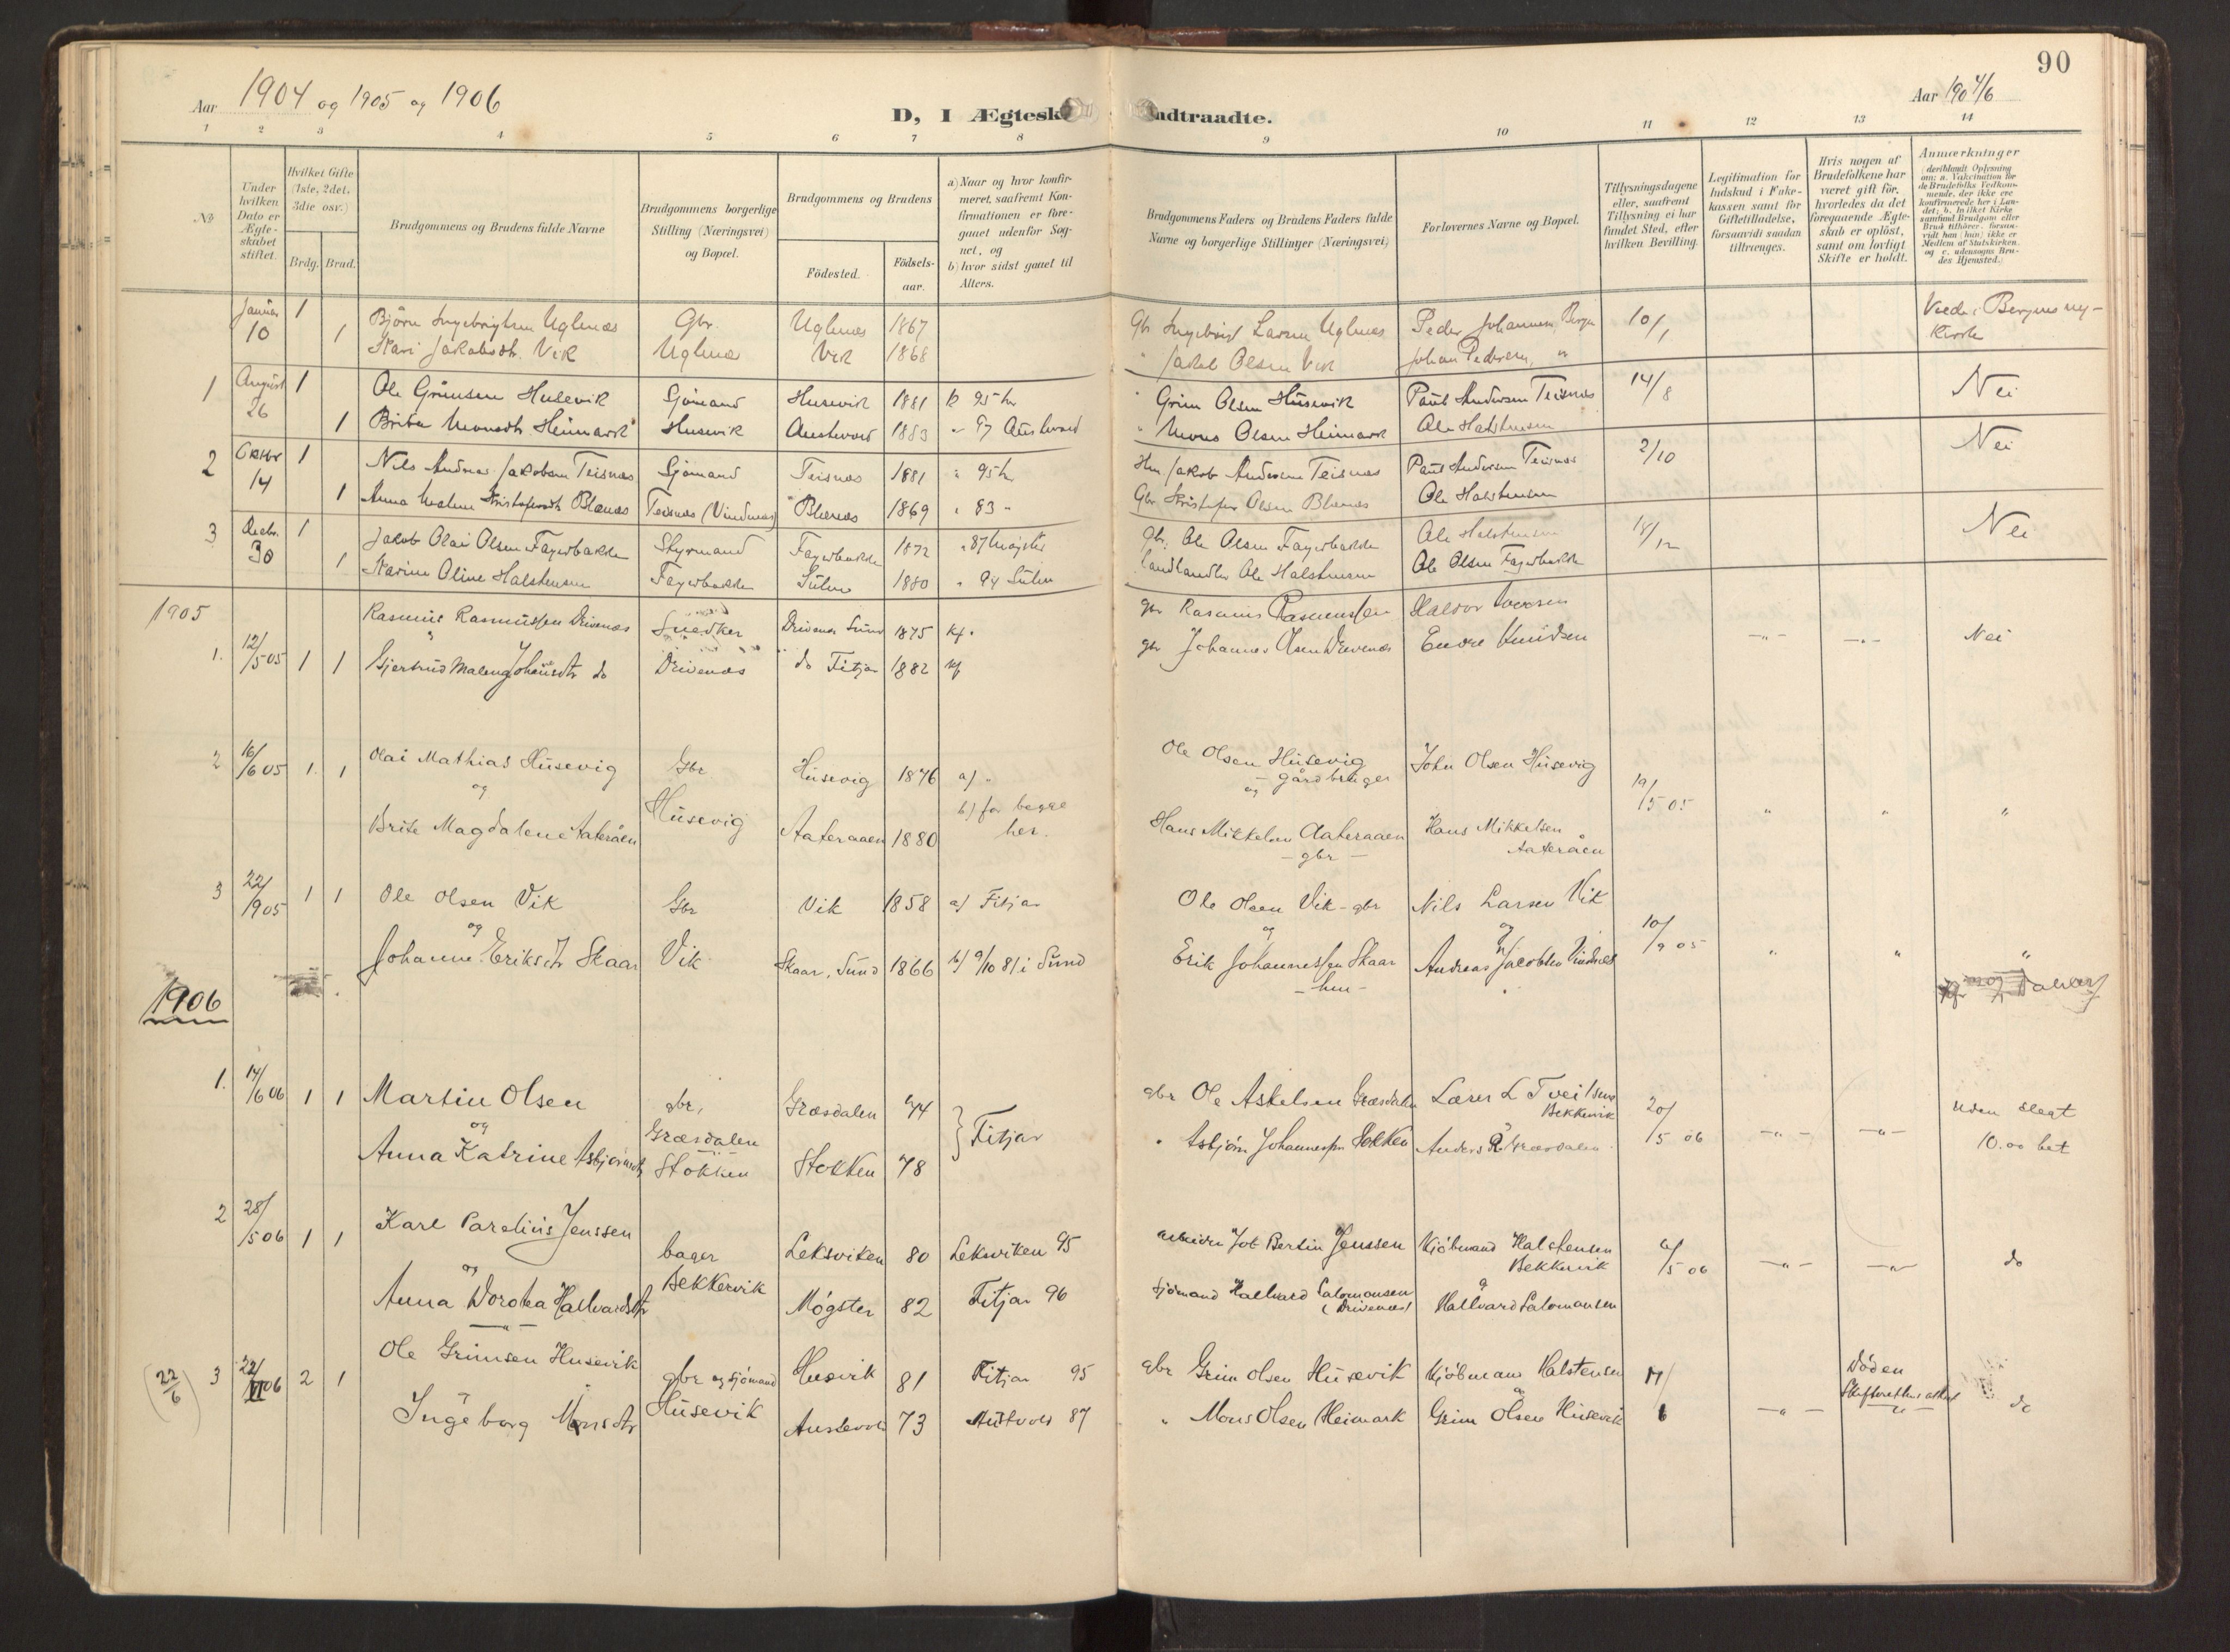 90
Aar 1904 og 1905 og 1906
D, I Ægtesk
ndtraadte.
Aar 1904/6
1 2 3 4 5 6 7 8 9 10 11 12 13 14
No
Under hvilken Dato er Ægteskabet stiftet.
Hvilket Gifte (1ste, 2det, 3die osv.)
Brdg. Brud.
Brudgommens og Brudens fulde Navne
Brudgommens borgerlige Stilling (Næringsvei) og Bopæl.
Brudgommens og Brudens
Födested.
Födsels-aar.
a) Naar og hvor konfirmeret, saafremt Konfirmationen er foregaaet udenfor Sognet, og
b) hvor sidst gaaet til Alters.
Brudgommens Faders og Brudens Faders fulde Navne og borgerlige Stillinger (Næringsvei)
Forlovernes Navne og Bopæl.
Tillysningsdagene eller, saafremt Tillysning ei har fundet Sted, efter hvilken Bevilling.
Legitimation for Indskud i Enkekassen samt for Giftetilladelse, forsaavidt saadan tiltrænges.
Hvis nogen af Brudefolkene har været gift för, hvorledes da det foregaaende Ægteskab er oplöst, samt om lovligt Skifte er holdt.
Anmærkninger
(deriblandt Oplysning om: a. Vakcination for de Brudefolks Vedkommende, der ikke ere konfirmerede her i Landet; b. hvilket Kirkesamfund Brudgom eller Brud tilhörer, forsaavidt han (hun) ikke er Medlem af Statskirken, og c. udensogns Brudes Hjemsted.)
Januar 1 Björn Ingebrigtsen Uglenæs Gbr. Uglenæs 1867 Gbr Ingebrigt Larsen Uglenæs Peder Johannesen, Bergen 10/1 Viede i Bergens ny-
10 1 Kari Jakobsdtr. Vik Uglenæs Vik 1868 " Jakob Olsen Vik Johan Pedersen, " kirke
1 August 1 Ole Grimsen Husevik Sjömand Husevik 1881 k 95 hr " Grim Olsen Husevik Paul Andersen Teisnæs 14/8 Nei
26 1 Brita Monsdtr. Heimark Husevik Austevold 1883 " 97 Austevold " Mons Olsen Heimark Ole Halstensen
2 Oktbr 1 Nils Andreas Jakobsen Teisnæs Sjömand Teisnæs 1881 " 95 hr Hm. Jakob Andersen Teisnæs Paul Andersen Teisnæs 2/10 Nei
14 1 Anna Malene Kristofersdtr Blænæs Teisnæs (Vindnæs) Blænæs 1869 " 83 " Gbr Kristofer Olsen Blænæs Ole Halstensen
3 Decbr. 1 Jakob Olai Olsen Fagerbakke Styrmand Fagerbakke 1872 " 87 Møgster Gbr. Ole Olsen Fagerbakke Ole Halstensen 18/12 Nei
30 1 Karine Oline Halstensen Fagerbakke 1880 " 94 Landhandler Ole Halstensen Ole Olsen Fagerbakke
1905
Rasmus Rasmussen Drivenæs Snedker Drivenæs Sund 1875 Kf. gbr Rasmus Rasmussen Haldor Iversen
1. 12/5 05 1 1 Gjertrud Malene Johansdtr do Drivenæs do Fitjar 1882 gbr Johannes Olsen Drivenæs Endre Knudsen -"- -"- Nei
2 16/6 05 1. 1 Olai Mathias Husevig Gbr Husevig 1876 a) " Ole Olsen Husevig John Olsen Husevig
og - gårdbruger
og 19/5 05 " " "
Brite Magdalene Aateraaen Husevig Aateraaen 1880 b) for begge her. Hans Mikkelsen Aateraaen Hans Mikkelsen
- gbr - Aateraaen
3 22/9 05 1 1 Ole Olsen Vik Gbr Vik 1858 a) Fitjar Ole Olsen Vik - gbr Nils Larsen Vik
og og og 10/9 05 " " "
Johanne Eriksdtr Skaar Vik Skaar, Sund 1866 b) 9/10 81 i Sund Erik Johannessen Skaar Andreas Jacobsen Vindnes
- hm -
1906
1. 14/6 06 1 1 Martin Olsen gbr, Græsdalen 74 gbr Ole Askelsen Græsdalen Lærer L Tveitnes Bekkervik 20/5 06 -"- -"- Uden slegt
og Græsdalen } Fitjar
Anna Katrine Asbjörnsdtr Stokken Stokken 78 " Asbjörn Johannesen Stokken Anders Græsdalen 10.00 bet
2 28/5 06 1 1 Karl Parelius Jenssen bager Leksviken 80 Leksviken 95 arbeider Job Bertin Jenssen Kjöbmand Halstensen Bekkervik 6/5 06 -"- -"- do
og Bekkervik og
Anna Dorotea Hallvardsdtr Møgster 82 Fitjar 96 Sjömand Hallvard Salomonsen (Drivenæs) Hallvard Salomonsen
(22/6) 3 22/VI 06 2 1 Ole Grimsen Husevik gbr og sjömand Husevik 81 Fitjar 95 gbr Grim Olsen Husevik Kjöbmann Halstensen Döden
og og
Ingeborg Monsdtr Husevik Austevold 73 Austevold 87 " Mons Olsen Heimark Grim Olsen Husevik 6 -"- do